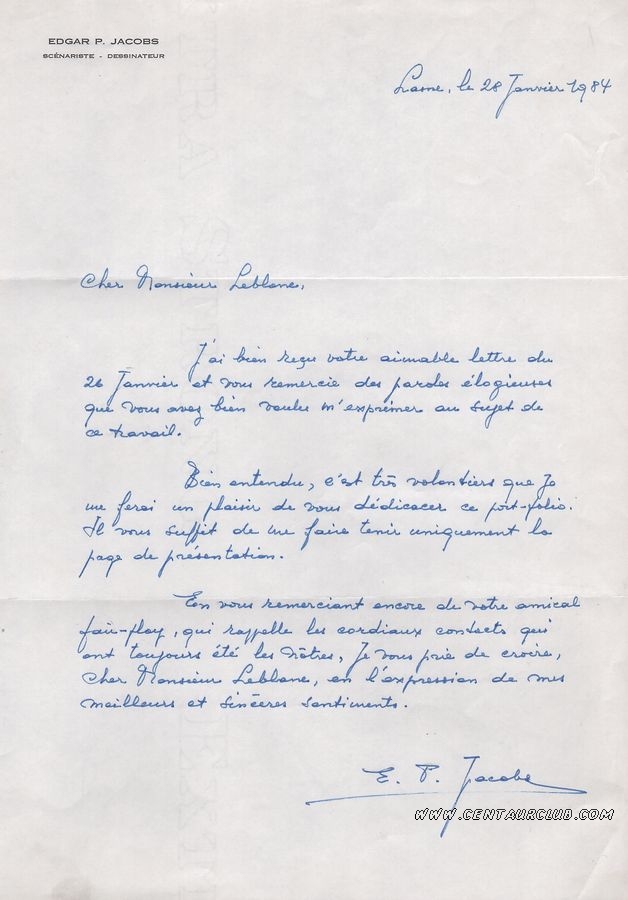 EDGAR P. JACOBS
SCÉNARISTE - DESSINATEUR
Lasne, le 28 Janvier 1984
Cher Monsieur Leblanc,
J'ai bien reçu votre aimable lettre du
26 Janvier et vous remercie des paroles élogieuses
que vous avez bien voulu m'exprimer au sujet de
ce travail.
Bien entendu, c'est très volontiers que je
me ferai un plaisir de vous dédicacer ce port-folio.
Il vous suffit de me faire tenir uniquement la
page de présentation.
En vous remerciant encore de votre amical
fair-play, qui rappelle les cordiaux contacts qui
ont toujours été les nôtres, Je vous prie de croire,
Cher Monsieur Leblanc, en l'expression de mes
meilleurs et sincères sentiments.
E. P. Jacobs
WWW.CENTAURCLUB.COM